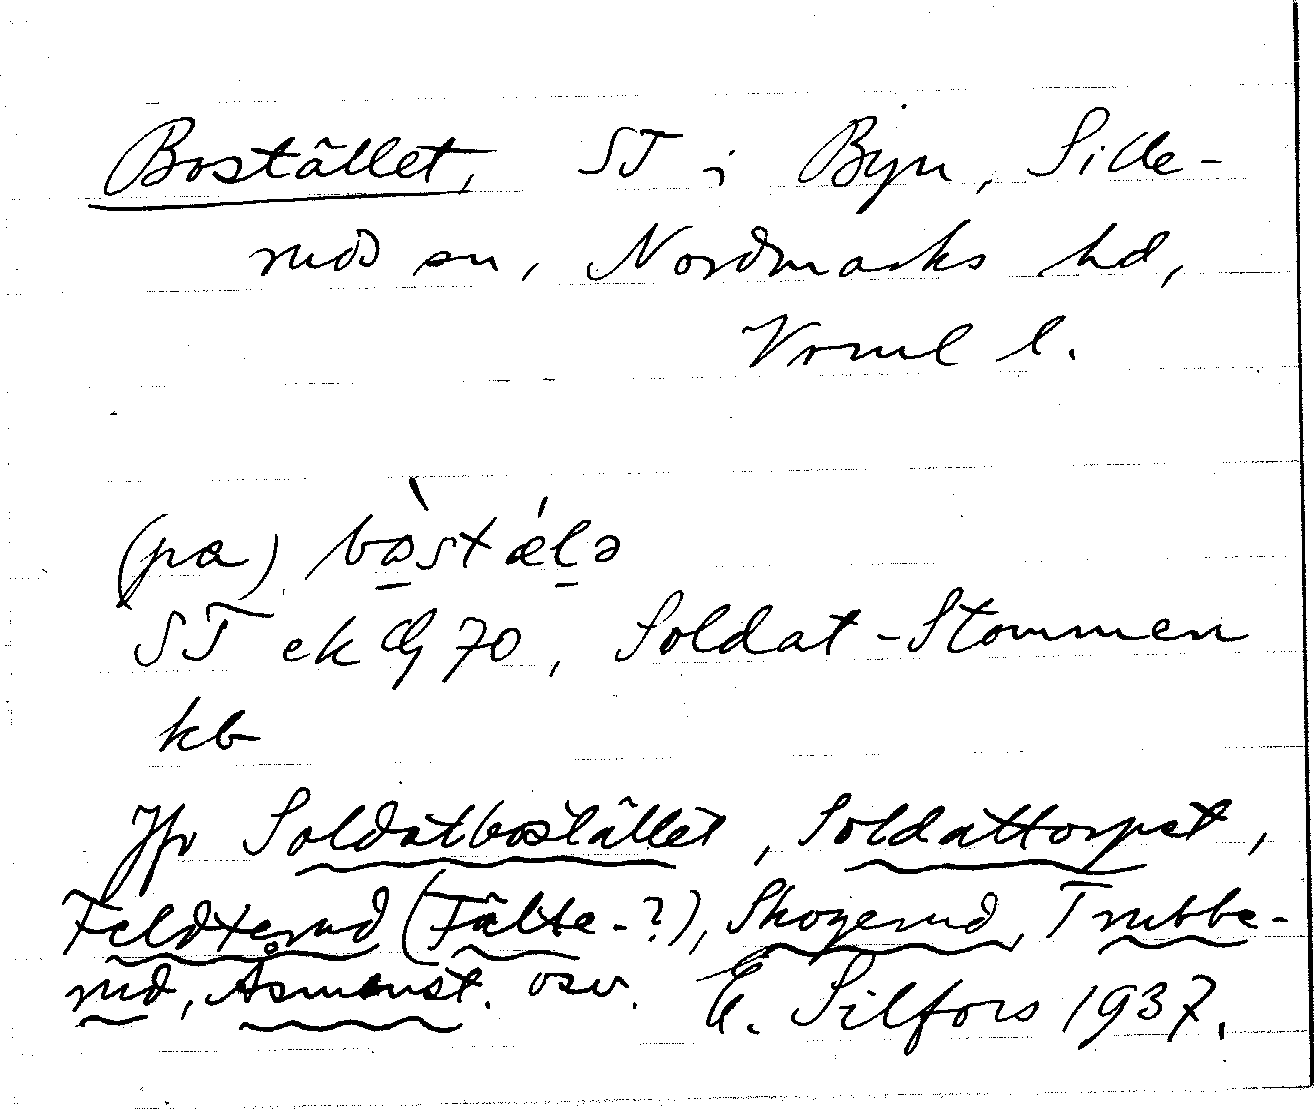 Bostället, ST i Byn, Sille-
ruds sn, Nordmarks hd,
Vrml l.
(pa) bòstǽlə
ST ek G 70, Soldat-Stommen
kb
Jfr Soldatbostället, Soldattorpet,
Feldterud (Fälte-?), Skogerud, Trubbe-
rud, Åsmunst. osv. E. Silfors 1937.